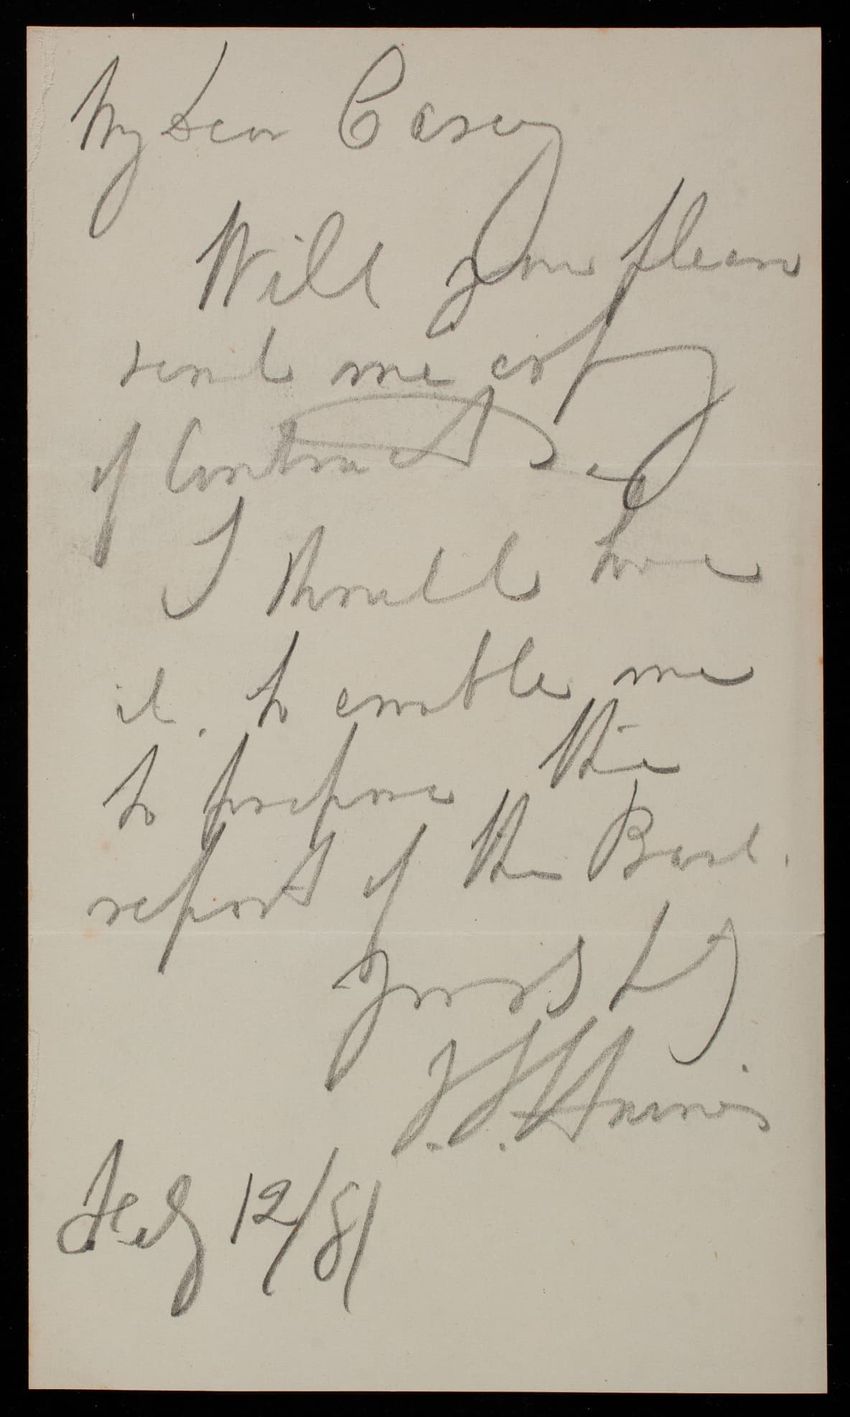 My dear Casey
Will you please
send me copy
of Contract &c
I should have
it, to enable me
to prepare the
report of the Board.
Yours ty
Feby 12/81